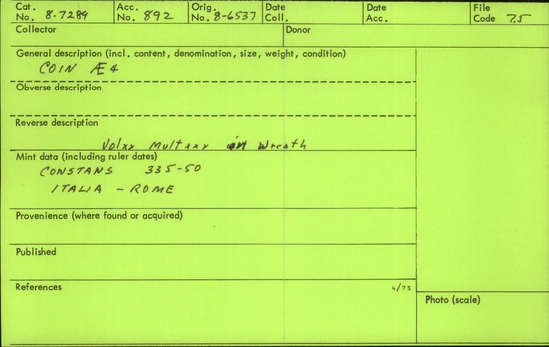 Cat. No. 8-7289 Acc. No. 892 Orig. No. 8-6537 Date Coll. Date Acc. File Code 7.5
Collector Donor
General description (incl. content, denomination, size, weight, condition)
COIN Æ4
Obverse description
Reverse description
Volxx Multxxx in Wreath
Mint data (including ruler dates)
CONSTANS 335-50
ITALIA - ROME
Provenience (where found or acquired)
Published
References 4/75
Photo (scale)